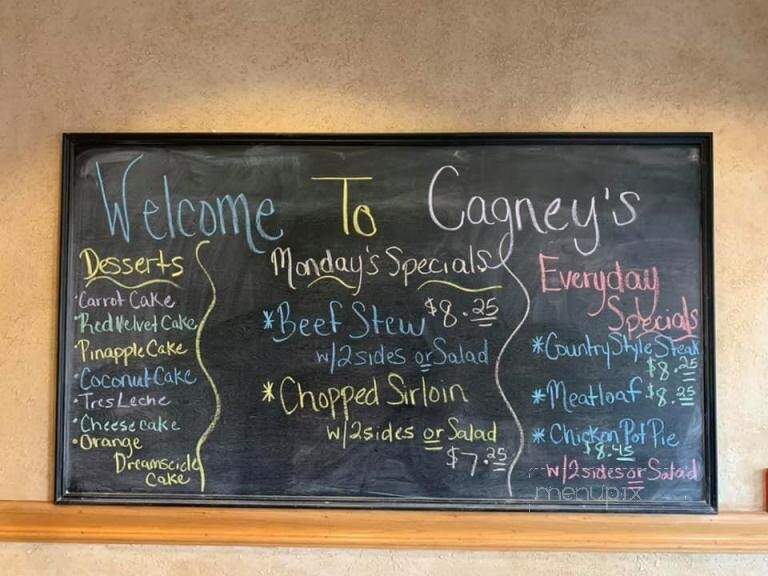 Welcome To Cagney's
Desserts
·Carrot Cake
·Red Velvet Cake
·Pinapple Cake
·Coconut Cake
·Tres Leche
·Cheese cake
·Orange
Dreamsicle
Cake
Monday's Specials
*Beef Stew $8.25
w/2 sides or Salad
*Chopped Sirloin
w/2 sides or Salad
$7.25
Everyday
Specials
*Country Style Steak
$8.25
*Meatloaf $8.25
*Chicken Pot Pie
$8.45
w/2 sides or Salad
menupix